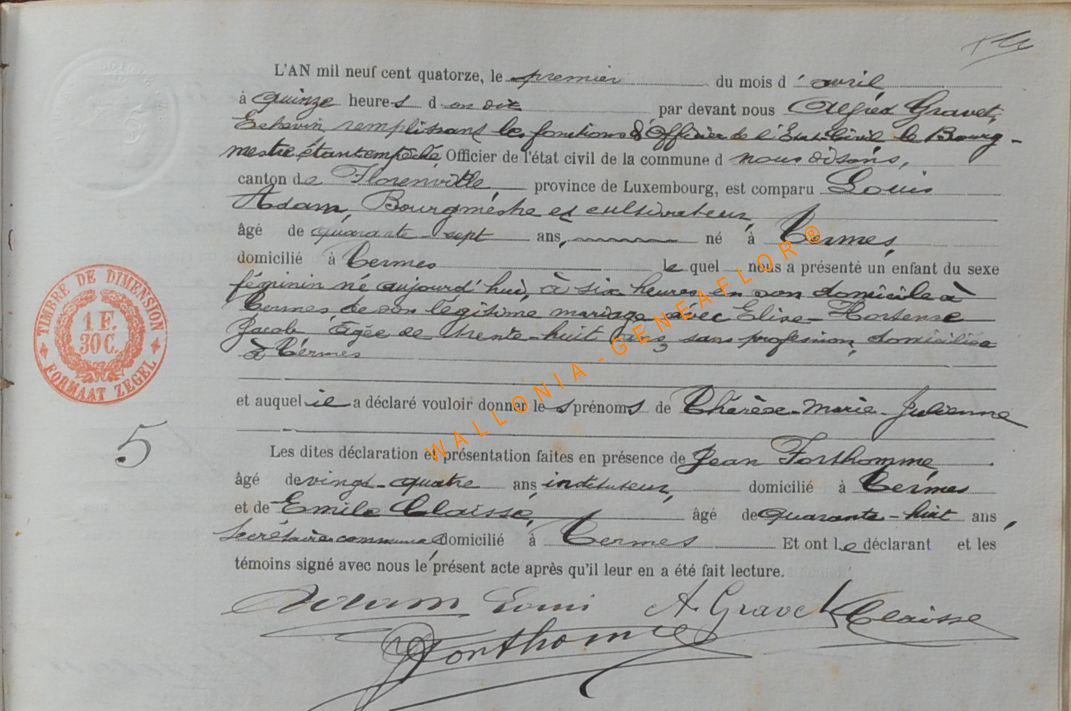 L'AN mil neuf cent quatorze, le premier du mois d' avril
à quinze heures d
par devant nous Alfred Gravet,
Echevin remplissant les fonctions d'Officier de l'Etat-Civil le Bourg-
mestre étant empêché Officier de l'état civil de la commune d
canton de Florenville, province de Luxembourg, est comparu Louis
Adam, Bourgmestre et cultivateur,
âgé de quarante-sept ans, né à Termes,
domicilié à Termes lequel nous a présenté un enfant du sexe
féminin né aujourd'hui, à six heures en son domicile à
Termes, de son légitime mariage avec Elise-Hortense
Jacob âgée de trente-huit ans, sans profession, domiciliée
à Termes
et auquel il a déclaré vouloir donner les prénoms de Thérèse-Marie-Julienne
Les dites déclaration et présentation faites en présence de Jean Forthomme,
âgé de vingt-quatre ans instituteur, domicilié à Termes
et de Emile Claisse, âgé de quarante-huit ans,
secrétaire communal domicilié à Termes Et ont le déclarant et les
témoins signé avec nous le présent acte après qu'il leur en a été fait lecture.
Adam Louis A. Gravet Claisse
Forthomme
TIMBRE DE DIMENSION
1 F.
30 C.
FORMAAT ZEGEL
5
WALLONIA-GENEAFLOR®